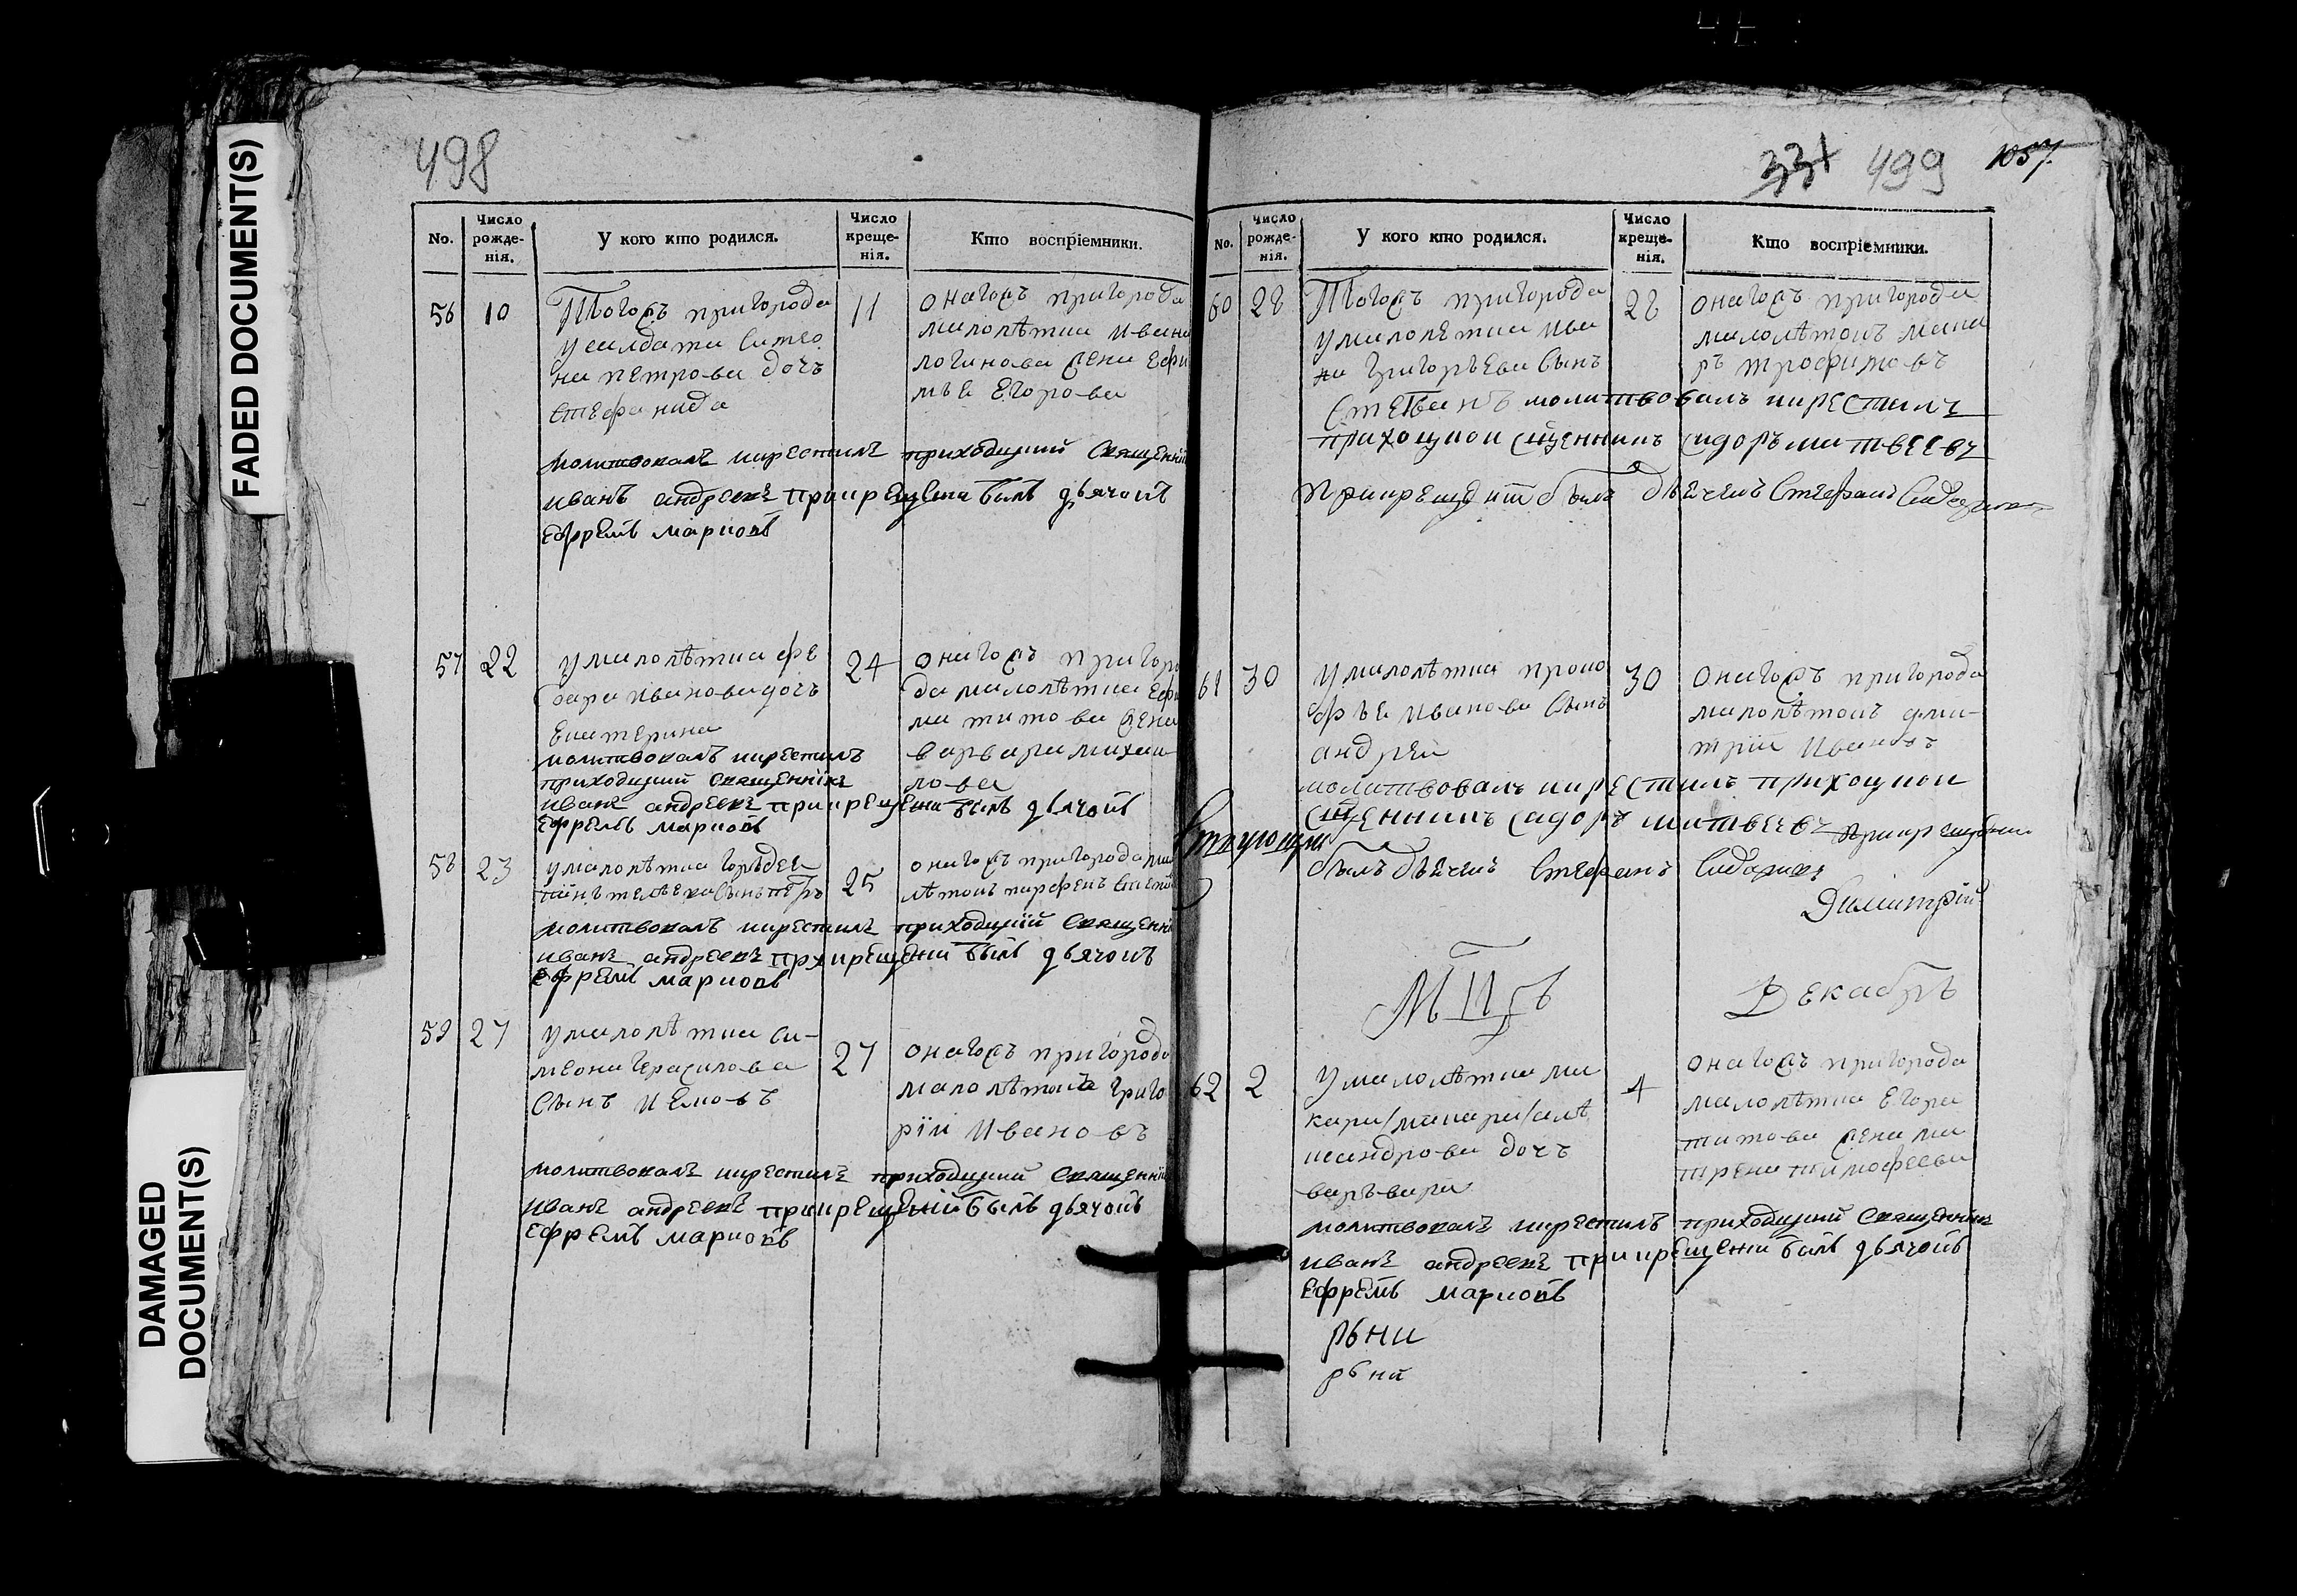 FADED DOCUMENT(S)
DAMAGED
DOCUMENT(S)
498
No.
Число
рожде-
нія.
У кого кто родился.
Число
креще-
нія.
Кто воспріемники.
56 10
Тогожъ пригорода
усалдата Симео
на петрова дочъ
стефанида
11
онагожъ пригорода
малолѣтка Ивана
логинова жена Ефи
мъя Егорова
молитвовалъ икрестилъ приходцкий священни
иванъ андреевъ прикрещени былъ дьячокъ
Ефремъ марковъ
57 22
умалолѣтка фе
дара иванова дочъ
Екатерина
24
онагожъ пригоро
да малолѣтка Ефи
ма титова жена
варвара михаи
лова
молитвовалъ икрестилъ
приходцкий священникъ
иванъ андреевъ прикрещени былъ дьячокъ
Ефремъ марковъ
58 23
умалолѣтка
25
онагожъ пригорода ма
лѣтокъ парфенъ
молитвовалъ икрестилъ приходцкий священни
иванъ андреевъ прикрещени былъ дьячокъ
Ефремъ марковъ
59 27
умалолѣтка си-
меона герасимова
сынъ иаковъ
27
онагожъ пригорода
малолѣтокъ григо
рій Ивановъ
молитвовалъ икрестилъ приходцкий священни
иванъ андреевъ прикрещений былъ дьячокъ
Ефремъ марковъ
331 499 1057.
No.
Число
рожде-
нія.
У кого кто родился.
Число
креще-
нія.
Кто воспріемники.
60 28
Тогожъ пригорода
умалолетка ива
на григоръева сынъ
28
онагожъ пригорода
малолѣтокъ мака
ръ трофимовъ
Стефанъ молитвовалъ икрестилъ
приходцкои сщенникъ сидоръ матвеевъ
прикрещениї былъ дьячекъ Стефанъ Сидоровъ
61 30
умалолѣтка проко
фъя иванова сынъ
андрей
30
онагожъ пригорода
малолѣтокъ дми-
трiй Ивановъ
молитвовалъ икрестилъ приходцкои
сщенникъ сидоръ матвеевъ прикрещении
былъ дьячекъ Стефанъ Сидоровъ
Димитрій
Мцъ Декабръ
62 2
умалолѣтка ма
кара/макара/алѣ
ксандрова дочъ
варъвара
4
онагожъ пригорода
малолѣтка Егора
титова жена ма
трена тимофеева
молитвовалъ икрестилъ приходцкий священникъ
иванъ андреевъ прикрещени былъ дьячокъ
Ефремъ марковъ
рьни
рьнй